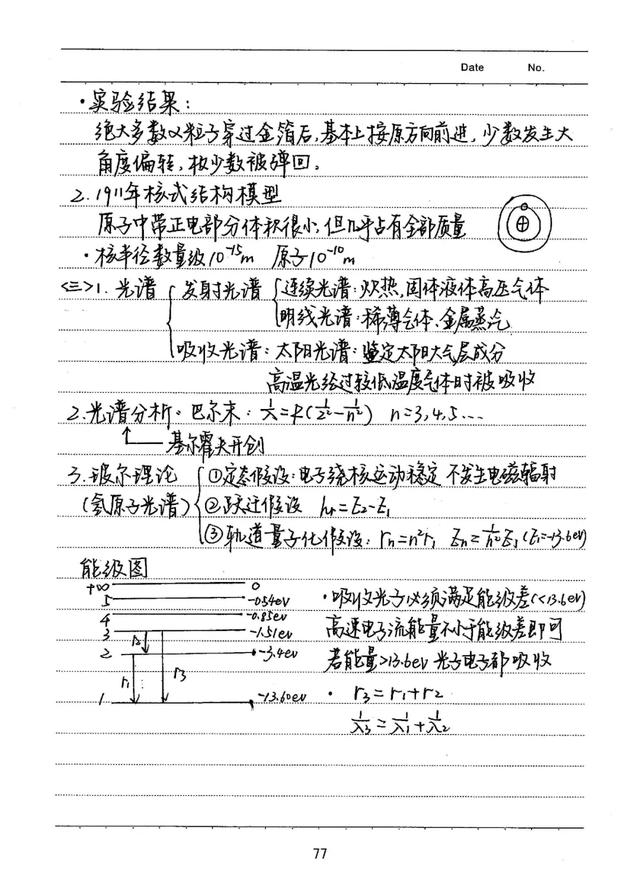 Date No.
·实验结果：
绝大多数α粒子穿过金箔后,基本上按原方向前进,少数发生大
角度偏转,极少数被弹回。
2.1911年核式结构模型
原子中带正电部分体积很小,但几乎占有全部质量
·核半径数量级10⁻¹⁵m 原子10⁻¹⁰m
<三>1.光谱 发射光谱 连续光谱:炽热,固体液体高压气体
明线光谱:稀薄气体、金属蒸气
吸收光谱:太阳光谱:鉴定太阳大气层成分
高温光经过较低温度气体时被吸收
2.光谱分析。巴尔末:1/λ=R(1/2²-1/n²) n=3,4,5...
基尔霍夫开创
3.玻尔理论 ①定态假设:电子绕核运动稳定 不发生电磁辐射
(氢原子光谱) ②跃迁假设 hν=E₂-E₁
③轨道量子化假设:rn=n²r₁ En=1/n²E₁(E₁=-13.6eV)
能级图
+∞ 0
5 -0.54eV
4 -0.85eV
3 -1.51eV
2 -3.4eV
1 -13.60eV
r₂
r₁
r₃
·吸收光子必须满足能级差(<13.6eV)
高速电子流能量不小于能级差即可
若能量>13.6eV 光子电子都吸收
· r₃=r₁+r₂
1/λ₃=1/λ₁+1/λ₂
77